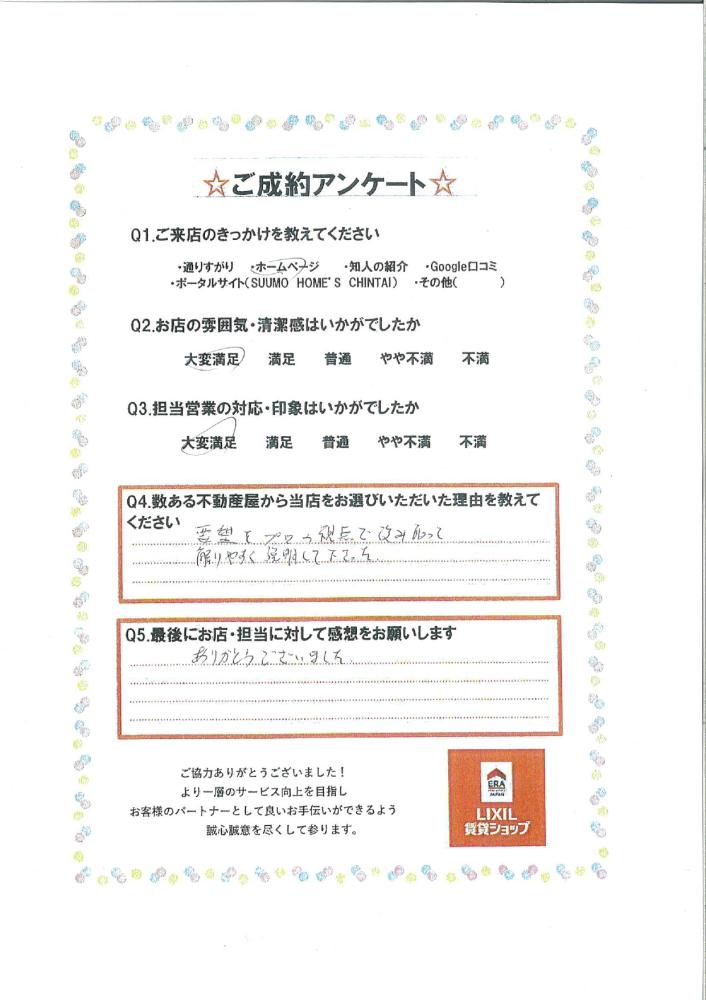 ☆ご成約アンケート☆
Q1.ご来店のきっかけを教えてください
・通りすがり ・ホームページ ・知人の紹介 ・Google口コミ
・ポータルサイト(SUUMO HOME'S CHINTAI) ・その他( )
Q2.お店の雰囲気・清潔感はいかがでしたか
大変満足 満足 普通 やや不満 不満
Q3.担当営業の対応・印象はいかがでしたか
大変満足 満足 普通 やや不満 不満
Q4.数ある不動産屋から当店をお選びいただいた理由を教えて
ください
要望をプロの視点で汲み取って
解りやすく説明して下さった
Q5.最後にお店・担当に対して感想をお願いします
ありがとうございました。
ご協力ありがとうございました！
より一層のサービス向上を目指し
お客様のパートナーとして良いお手伝いができるよう
誠心誠意を尽くして参ります。
ERA
JAPAN
LIXIL
賃貸ショップ